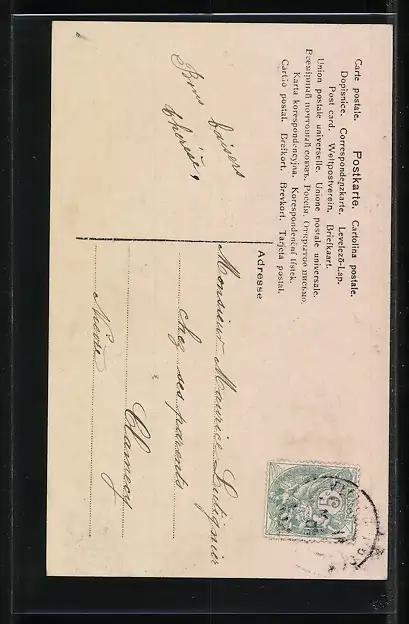 Carte postale. Postkarte. Cartolina postale.
Dopisnice. Correspondenzkarte. Levelező-Lap.
Post card. Weltpostverein. Briefkaart.
Union postale universelle. Unione postale universale.
Всемірный почтовый союзъ. Россія. Открытое письмо.
Karta korespondencyjna. Korespondenční lístek.
Cartão postal. Brefkort. Brevkort. Tarjeta postal.
Bons baisers
Thérèse
Adresse
Monsieur Maurice
chez ses parents
Clamecy
Nièvre